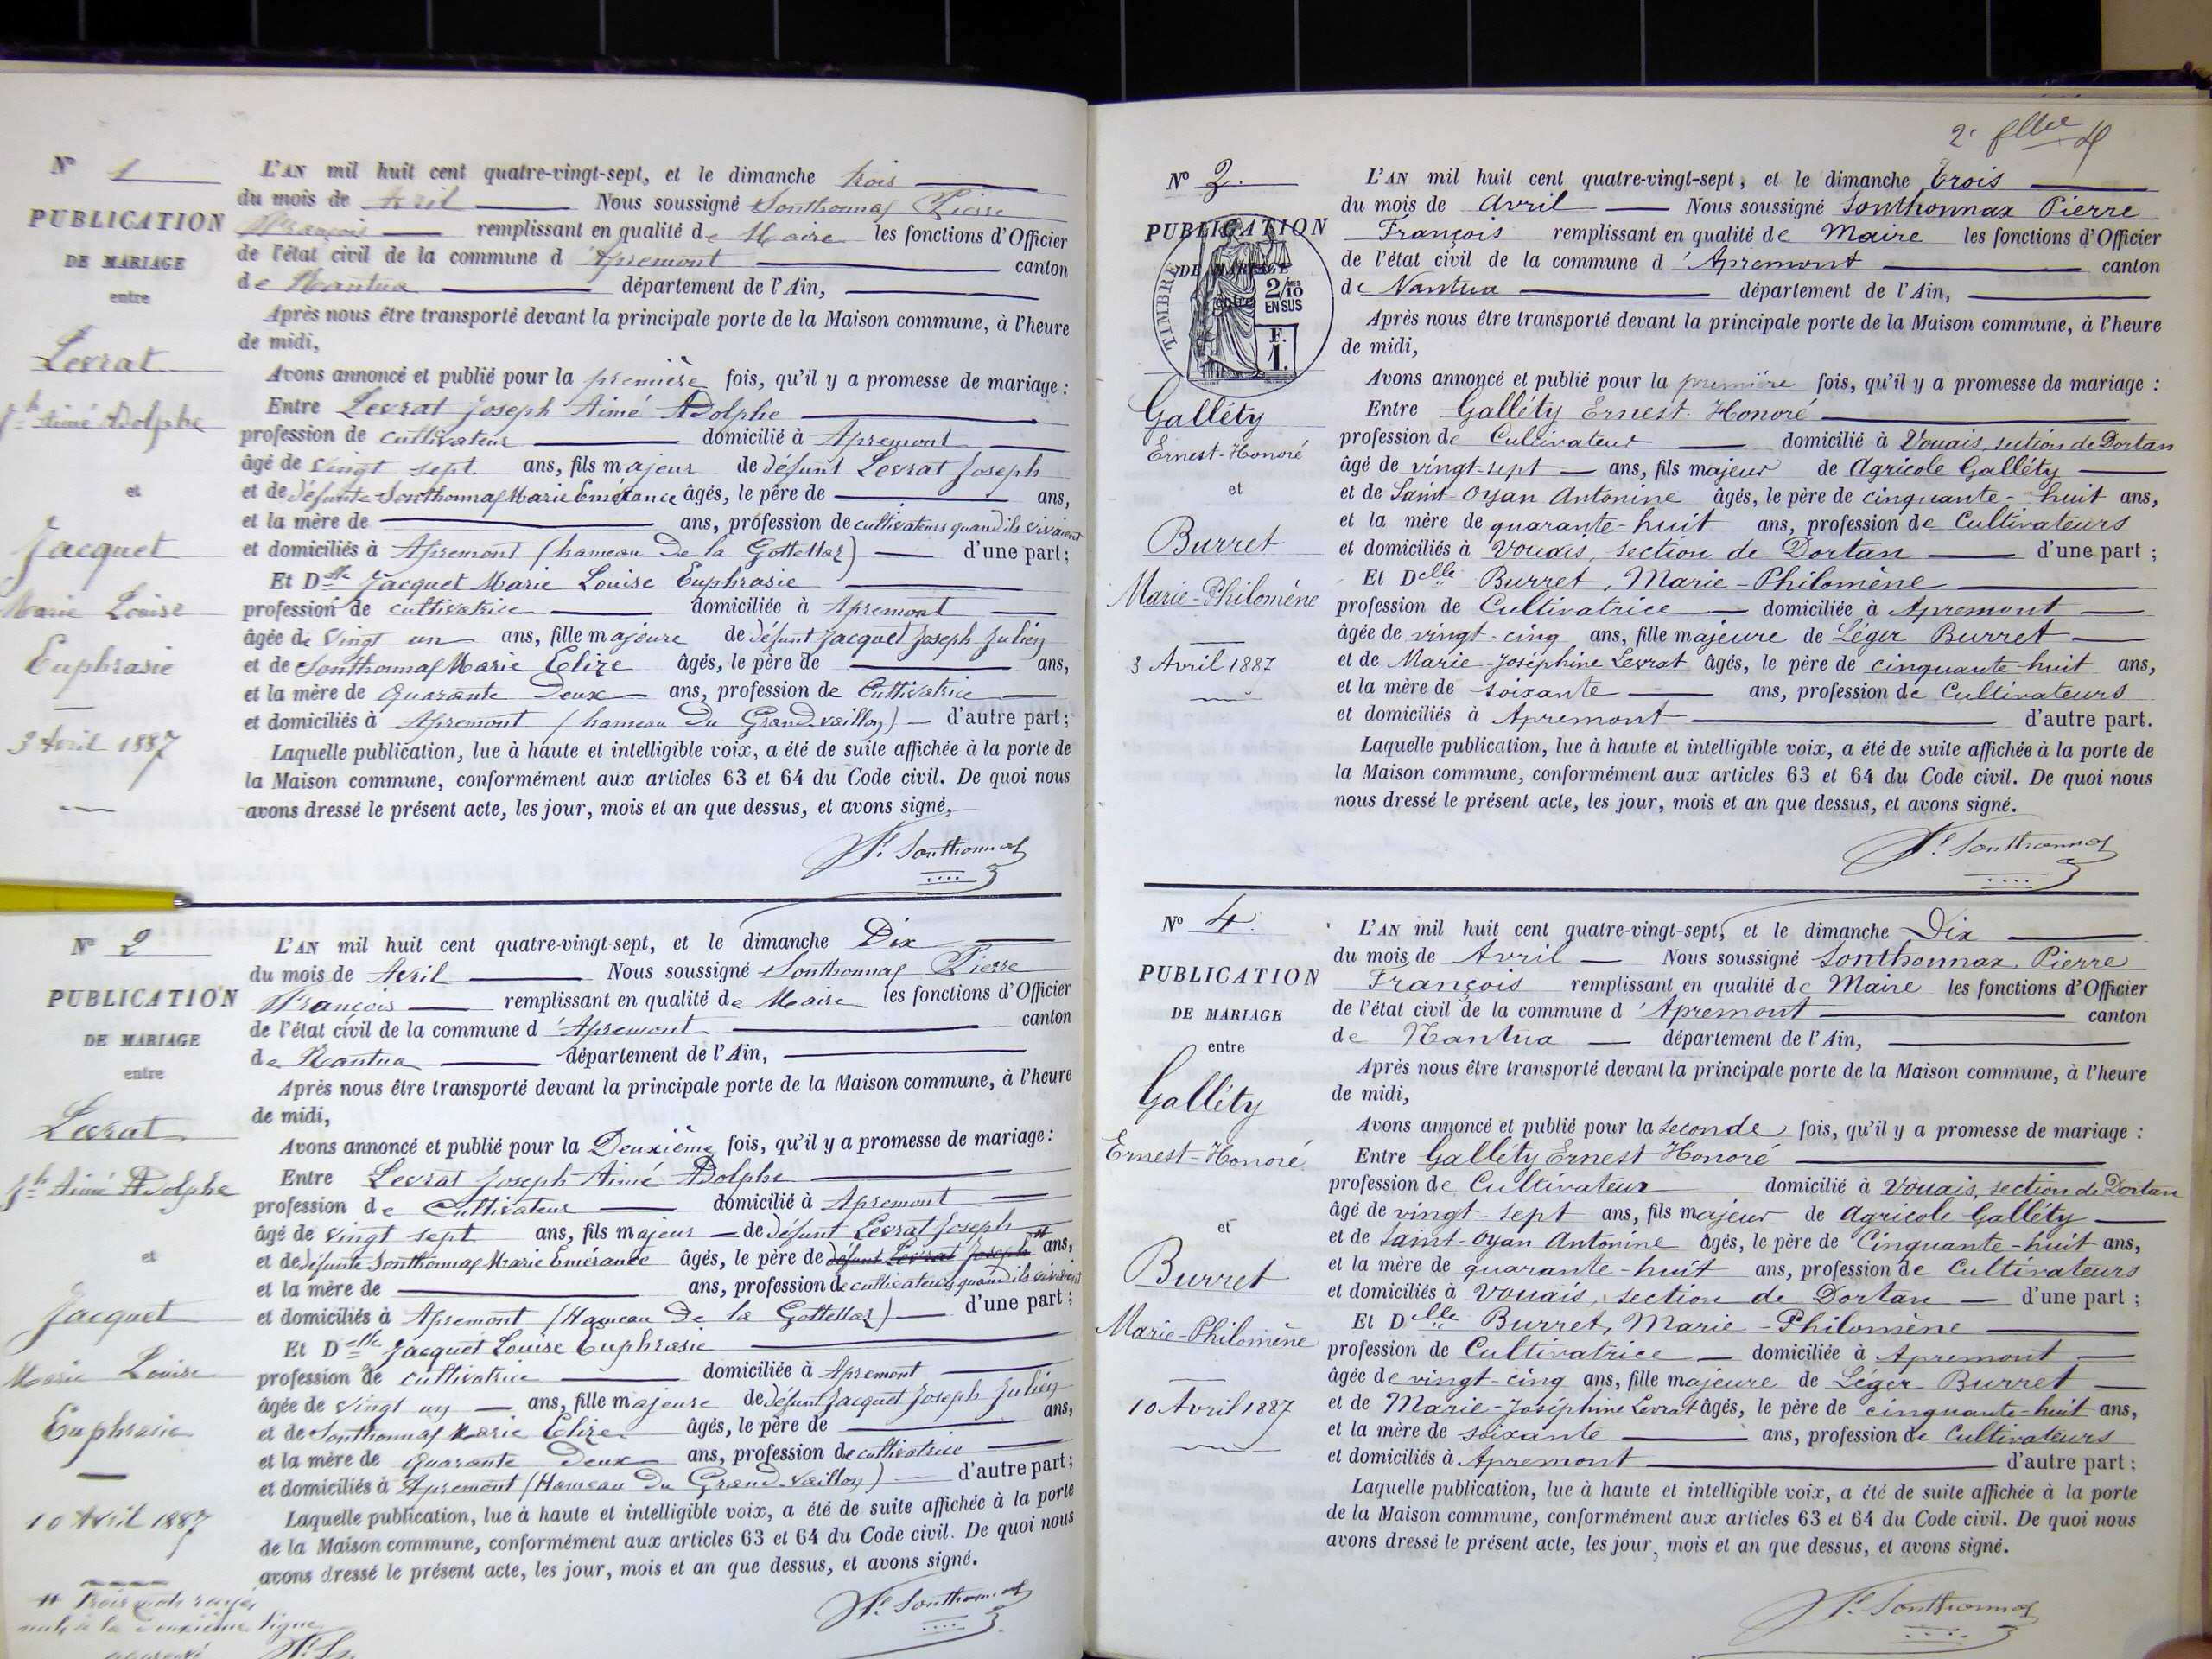 N° 1
PUBLICATION
DE MARIAGE
entre
Levrat
Jh Aimé Adolphe
et
Jacquet
Marie Louise
Euphrasie
3 Avril 1887
L'AN mil huit cent quatre-vingt-sept, et le dimanche trois
du mois de Avril Nous soussigné Sonthonnax Pierre
François remplissant en qualité de Maire les fonctions d'Officier
de l'état civil de la commune d'Apremont canton
de Nantua département de l'Ain,
Après nous être transporté devant la principale porte de la Maison commune, à l'heure
de midi,
Avons annoncé et publié pour la première fois, qu'il y a promesse de mariage :
Entre Levrat Joseph Aimé Adolphe
profession de cultivateur domicilié à Apremont
âgé de vingt sept ans, fils majeur de défunt Levrat Joseph
et de défunte Sonthonnax Marie Emérance âgés, le père de ans,
et la mère de ans, profession de cultivateurs quand ils vivaient
et domiciliés à Apremont (hameau de la Gottettaz) d'une part ;
Et Delle Jacquet Marie Louise Euphrasie
profession de cultivatrice domiciliée à Apremont
âgée de vingt un ans, fille majeure de défunt Jacquet Joseph Julien
et de Sonthonnax Marie Elize âgés, le père de ans,
et la mère de Quarante Deux ans, profession de Cultivatrice
et domiciliés à Apremont (hameau du Grand-vaillon) d'autre part ;
Laquelle publication, lue à haute et intelligible voix, a été de suite affichée à la porte de
la Maison commune, conformément aux articles 63 et 64 du Code civil. De quoi nous
avons dressé le présent acte, les jour, mois et an que dessus, et avons signé,
Sonthonnax
N° 2
PUBLICATION
DE MARIAGE
entre
Levrat
Jh Aimé Adolphe
et
Jacquet
Marie Louise
Euphrasie
10 Avril 1887
# Trois mots rayés
nuls à la deuxième ligne
L'AN mil huit cent quatre-vingt-sept, et le dimanche Dix
du mois de Avril Nous soussigné Sonthonnax Pierre
François remplissant en qualité de Maire les fonctions d'Officier
de l'état civil de la commune d'Apremont canton
de Nantua département de l'Ain,
Après nous être transporté devant la principale porte de la Maison commune, à l'heure
de midi,
Avons annoncé et publié pour la Deuxième fois, qu'il y a promesse de mariage :
Entre Levrat Joseph Aimé Adolphe
profession de Cultivateur domicilié à Apremont
âgé de vingt sept ans, fils majeur de défunt Levrat Joseph
et de défunte Sonthonnax Marie Emérance âgés, le père de défunt Levrat Joseph # ans,
et la mère de ans, profession de cultivateurs quand ils vivaient
et domiciliés à Apremont (Hameau de la Gottettaz) d'une part ;
Et Delle Jacquet Louise Euphrasie
profession de cultivatrice domiciliée à Apremont
âgée de vingt un ans, fille majeure de défunt Jacquet Joseph Julien
et de Sonthonnax Marie Elize âgés, le père de ans,
et la mère de Quarante Deux ans, profession de cultivatrice
et domiciliés à Apremont (Hameau du Grand-vaillon) d'autre part ;
Laquelle publication, lue à haute et intelligible voix, a été de suite affichée à la porte
de la Maison commune, conformément aux articles 63 et 64 du Code civil. De quoi nous
avons dressé le présent acte, les jour, mois et an que dessus, et avons signé.
Sonthonnax
2e
N° 3.
PUBLICATION
DE MARIAGE
entre
TIMBRE
2/10
EN SUS
F.
1.
Galléty
Ernest-Honoré
et
Burret
Marie-Philomène
3 Avril 1887
L'AN mil huit cent quatre-vingt-sept, et le dimanche trois
du mois de Avril Nous soussigné Sonthonnax Pierre
François remplissant en qualité de Maire les fonctions d'Officier
de l'état civil de la commune d'Apremont canton
de Nantua département de l'Ain,
Après nous être transporté devant la principale porte de la Maison commune, à l'heure
de midi,
Avons annoncé et publié pour la première fois, qu'il y a promesse de mariage :
Entre Galléty Ernest-Honoré
profession de Cultivateur domicilié à Vouais, section de Dortan
âgé de vingt-sept ans, fils majeur de Agricole Galléty
et de Saint-Oyan Antonine âgés, le père de cinquante-huit ans,
et la mère de quarante-huit ans, profession de Cultivateurs
et domiciliés à Vouais, section de Dortan d'une part ;
Et Delle Burret, Marie-Philomène
profession de Cultivatrice domiciliée à Apremont
âgée de vingt-cinq ans, fille majeure de Léger Burret
et de Marie-Joséphine Levrat âgés, le père de cinquante-huit ans,
et la mère de soixante ans, profession de Cultivateurs
et domiciliés à Apremont d'autre part.
Laquelle publication, lue à haute et intelligible voix, a été de suite affichée à la porte de
la Maison commune, conformément aux articles 63 et 64 du Code civil. De quoi nous
nous dressé le présent acte, les jour, mois et an que dessus, et avons signé.
Sonthonnax
N° 4.
PUBLICATION
DE MARIAGE
entre
Galléty
Ernest-Honoré
et
Burret
Marie-Philomène
10 Avril 1887
L'AN mil huit cent quatre-vingt-sept, et le dimanche Dix
du mois de Avril Nous soussigné Sonthonnax, Pierre
François remplissant en qualité de Maire les fonctions d'Officier
de l'état civil de la commune d'Apremont canton
de Nantua département de l'Ain,
Après nous être transporté devant la principale porte de la Maison commune, à l'heure
de midi,
Avons annoncé et publié pour la seconde fois, qu'il y a promesse de mariage :
Entre Galléty Ernest Honoré
profession de Cultivateur domicilié à Vouais, section de Dortan
âgé de vingt-sept ans, fils majeur de Agricole Galléty
et de Saint-Oyan Antonine âgés, le père de Cinquante-huit ans,
et la mère de quarante-huit ans, profession de Cultivateurs
et domiciliés à Vouais, section de Dortan d'une part ;
Et Delle Burret, Marie-Philomène
profession de Cultivatrice domiciliée à Apremont
âgée de vingt-cinq ans, fille majeure de Léger Burret
et de Marie-Joséphine Levrat âgés, le père de cinquante-huit ans,
et la mère de soixante ans, profession de Cultivateurs
et domiciliés à Apremont d'autre part ;
Laquelle publication, lue à haute et intelligible voix, a été de suite affichée à la porte
de la Maison commune, conformément aux articles 63 et 64 du Code civil. De quoi nous
avons dressé le présent acte, les jour, mois et an que dessus, et avons signé.
Sonthonnax